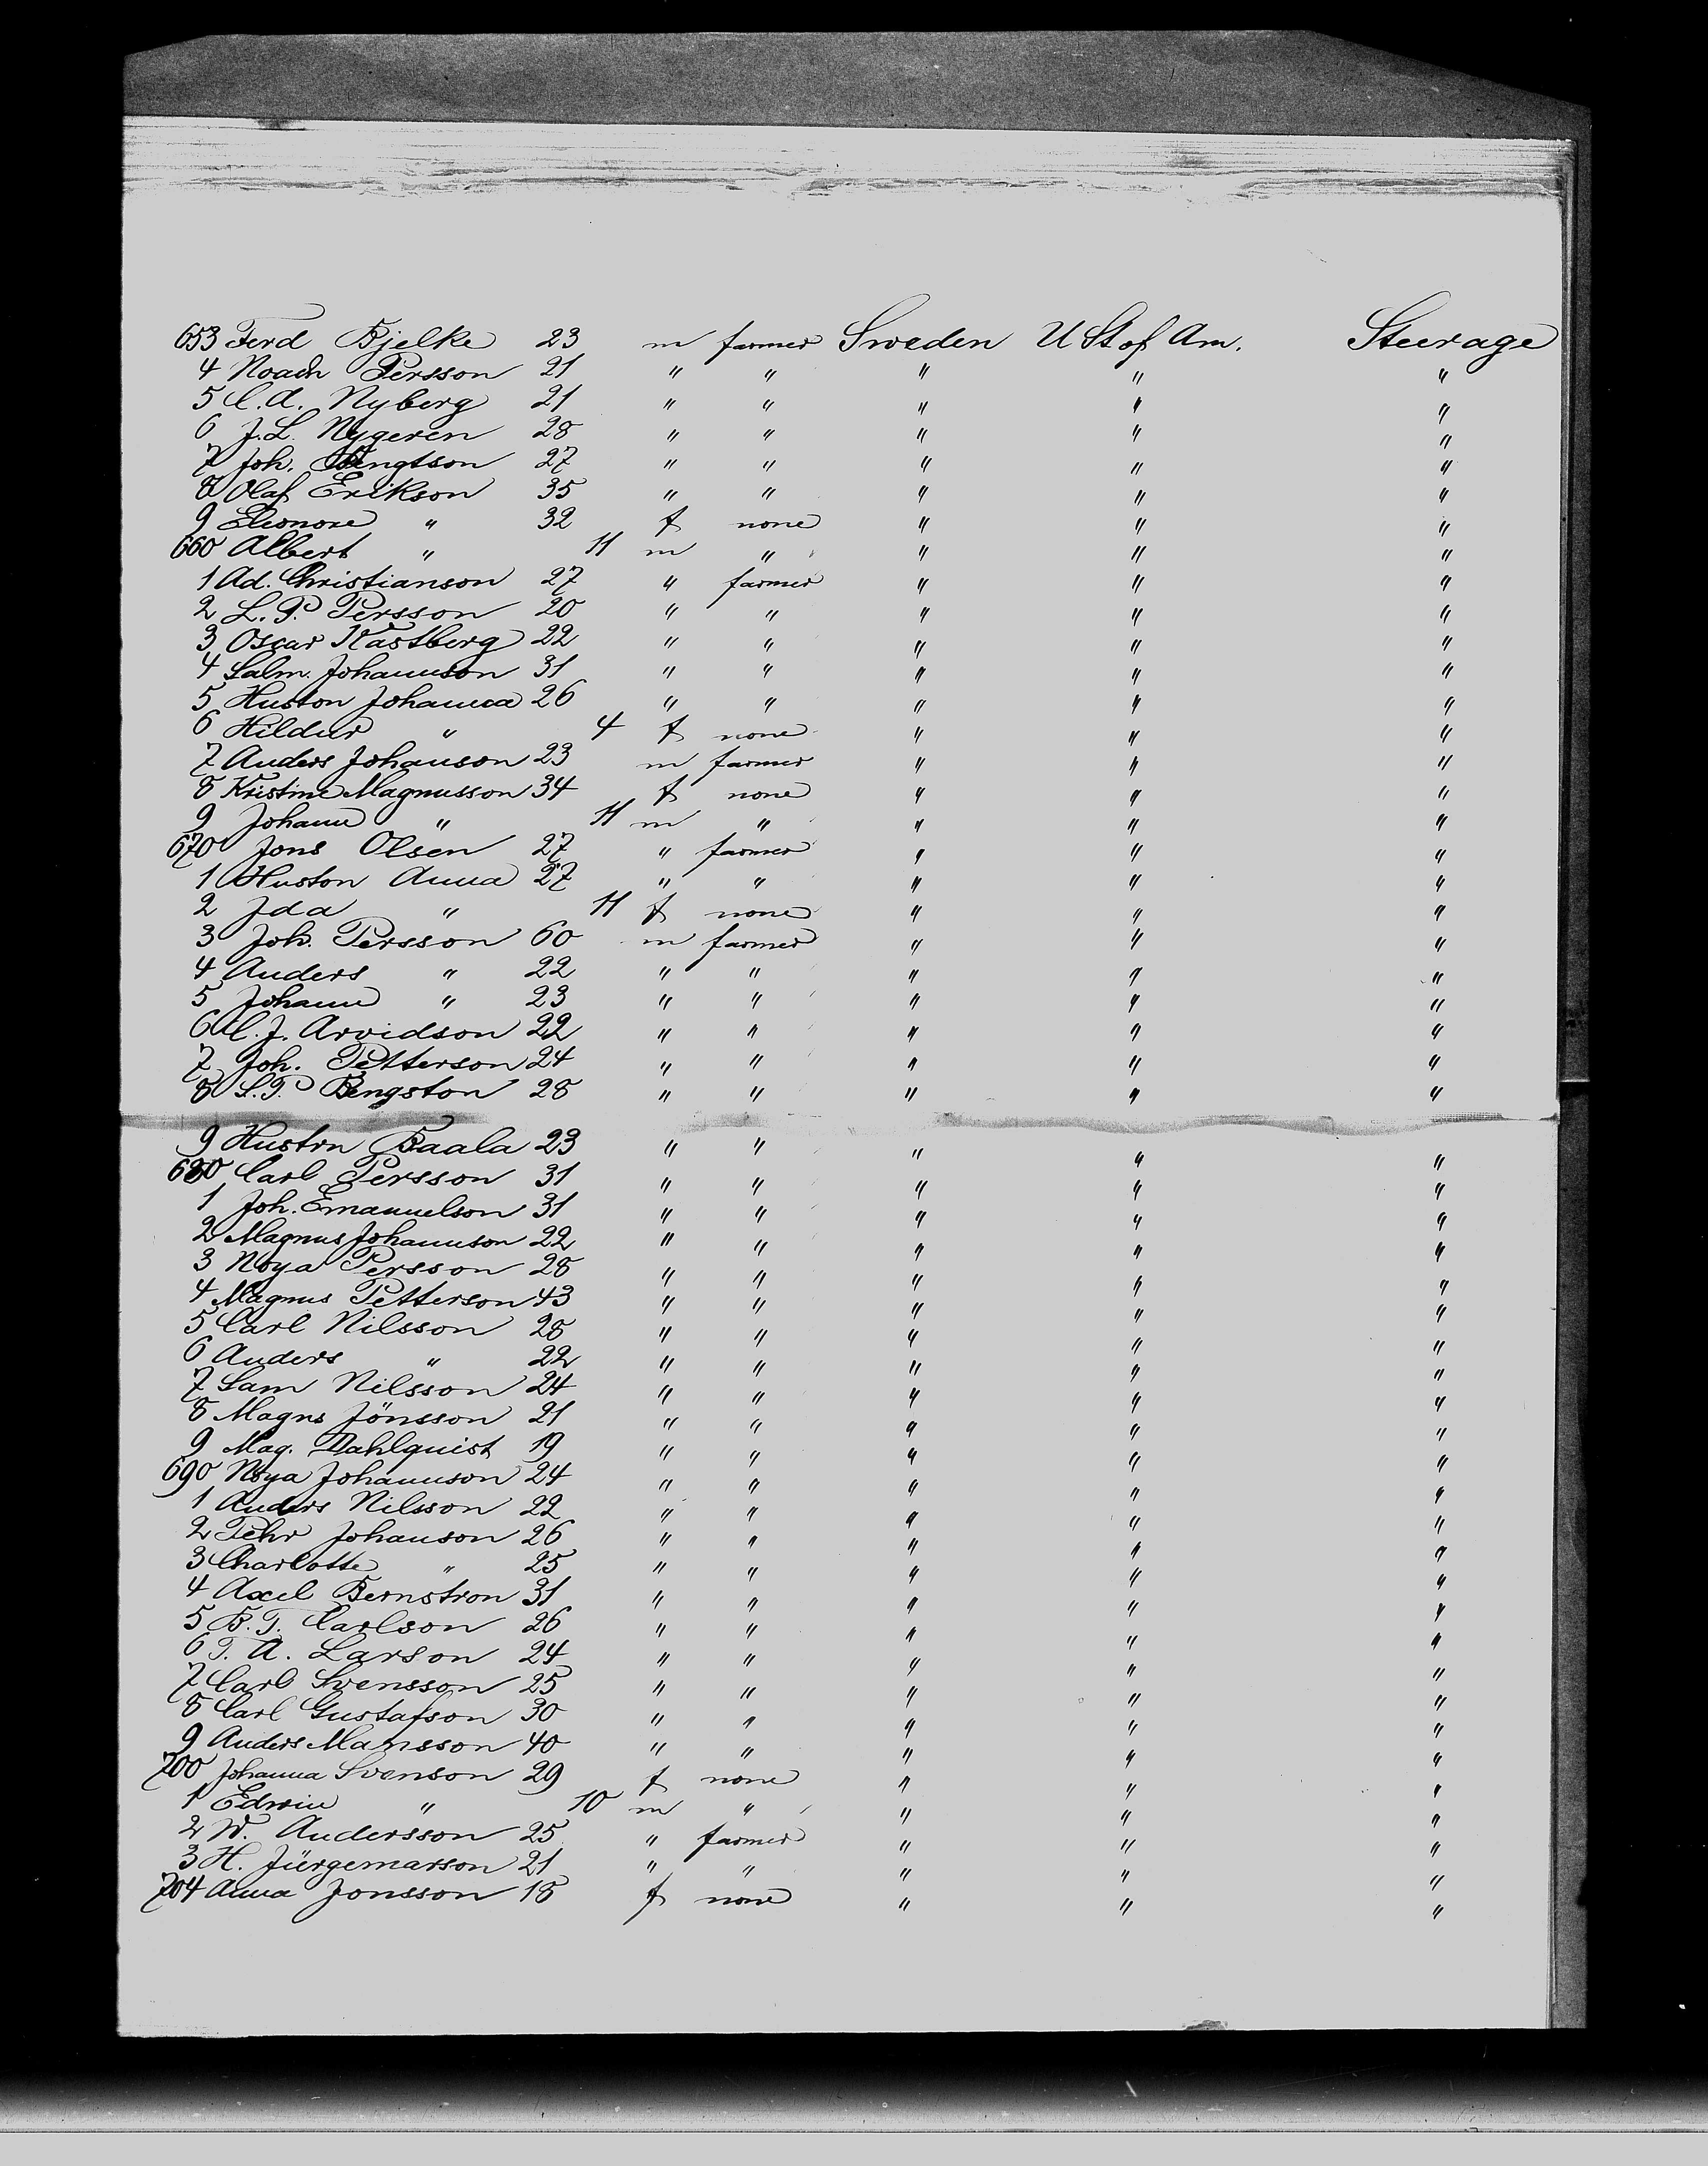 653 Ferd Bjelke 23 m farmer Sweden U St of Am. Steerage
4 Noach Persson 21 " " " " "
5 C. A. Nyberg 21 " " " " "
6 J. L. Nygeren 28 " " " " "
7 Joh. Bengtson 27 " " " " "
8 Olaf Erikson 35 " " " " "
9 Eleonore " 32 f none " " "
660 Albert " 11 m " " " "
1 Ad. Christianson 27 " farmer " " "
2 L. P. Persson 20 " " " " "
3 Oscar Kastberg 22 " " " " "
4 Salm. Johannson 31 " " " " "
5 Huston Johanna 26 " " " " "
6 Hildur " 4 f none " " "
7 Anders Johanson 23 m farmer " " "
8 Kristine Magnusson 34 f none " " "
9 Johann " 11 m " " " "
670 Jons Olsen 27 " farmer " " "
1 Huston Anna 27 " " " " "
2 Ida " 11 f none " " "
3 Joh. Persson 60 m farmer " " "
4 Anders " 22 " " " " "
5 Johann " 23 " " " " "
6 J. Arvidson 22 " " " " "
7 Joh. Petterson 24 " " " " "
8 S. P. Bengston 28 " " " " "
9 Hustrn Baala 23 " " " " "
680 Carl Persson 31 " " " " "
1 Joh. Emanuelson 31 " " " " "
2 Magnus Johannson 22 " " " " "
3 Noya Persson 28 " " " " "
4 Magnus Petterson 43 " " " " "
5 Carl Nilsson 28 " " " " "
6 Anders " 22 " " " " "
7 Sam Nilsson 24 " " " " "
8 Magns Jönsson 21 " " " " "
9 Mag. Dahlquist 19 " " " " "
690 Noya Johannson 24 " " " " "
1 Anders Nilsson 22 " " " " "
2 Pehr Johanson 26 " " " " "
3 Charlotte " 25 " " " " "
4 Axel Bernstron 31 " " " " "
5 B. T. Carlson 26 " " " " "
6 T. A. Larson 24 " " " " "
7 Carl Svensson 25 " " " " "
8 Carl Gustafson 30 " " " " "
9 Anders Mansson 40 " " " " "
700 Johanna Svenson 29 f none " " "
1 Edwin " 10 m " " " "
2 W. Andersson 25 " farmer " " "
3 H. Jürgemarson 21 " " " " "
704 Anna Jonsson 18 f none " " "